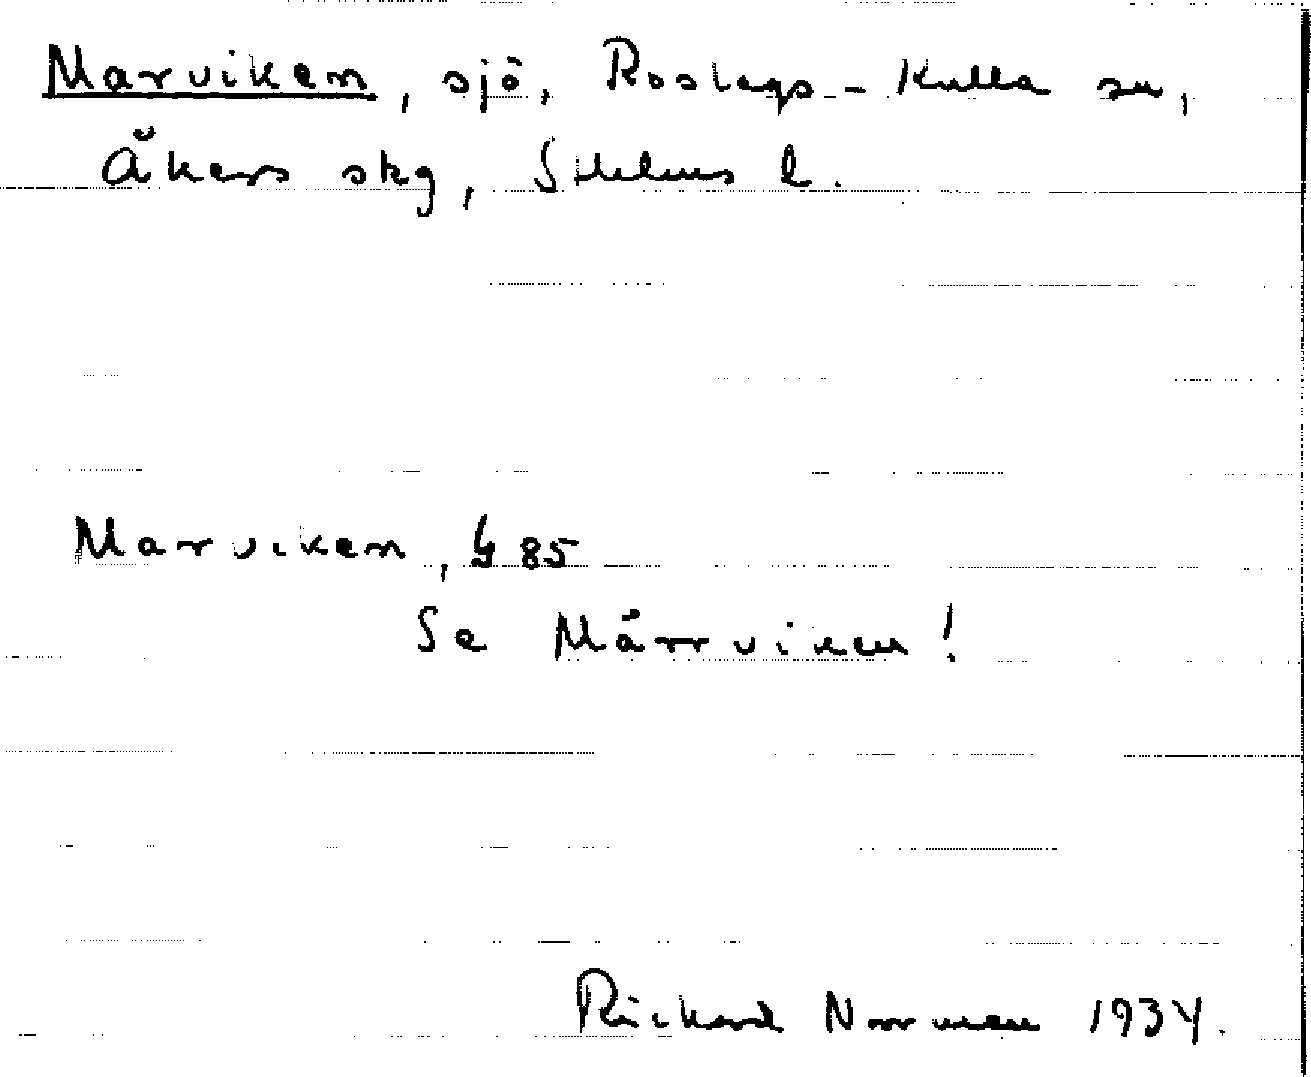 Marviken, sjö, Roslags-Kulla sn,
Åkers skg, Sthlms l.
Marviken, G 85
Se Märrviken!
Rickard Norrman 1934.